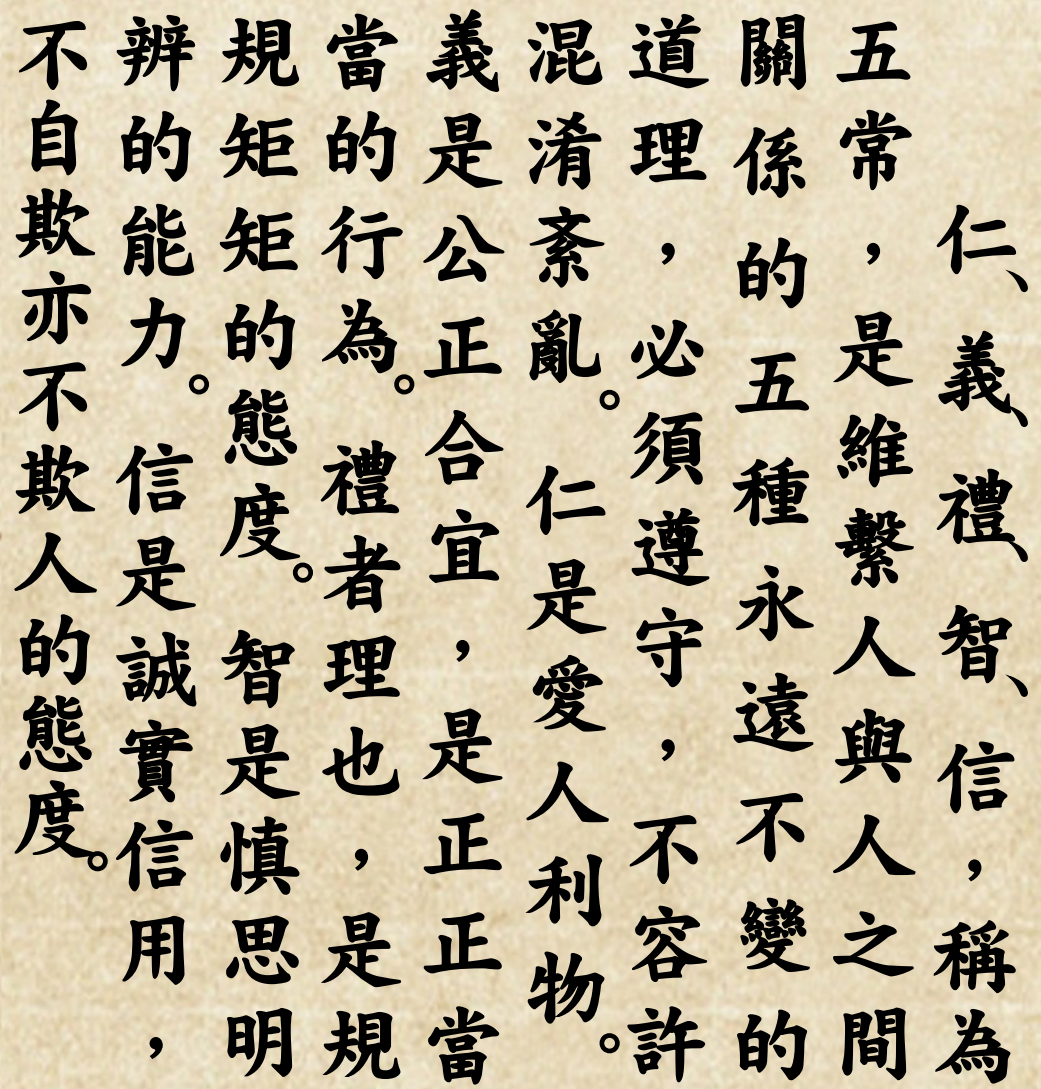 仁、義、禮、智、信，稱為
五常，是維繫人與人之間
關係的五種永遠不變的
道理，必須遵守，不容許
混淆紊亂。仁是愛人利物。
義是公正合宜，是正正當
當的行為。禮者理也，是規
規矩矩的態度。智是慎思明
辨的能力。信是誠實信用，
不自欺亦不欺人的態度。